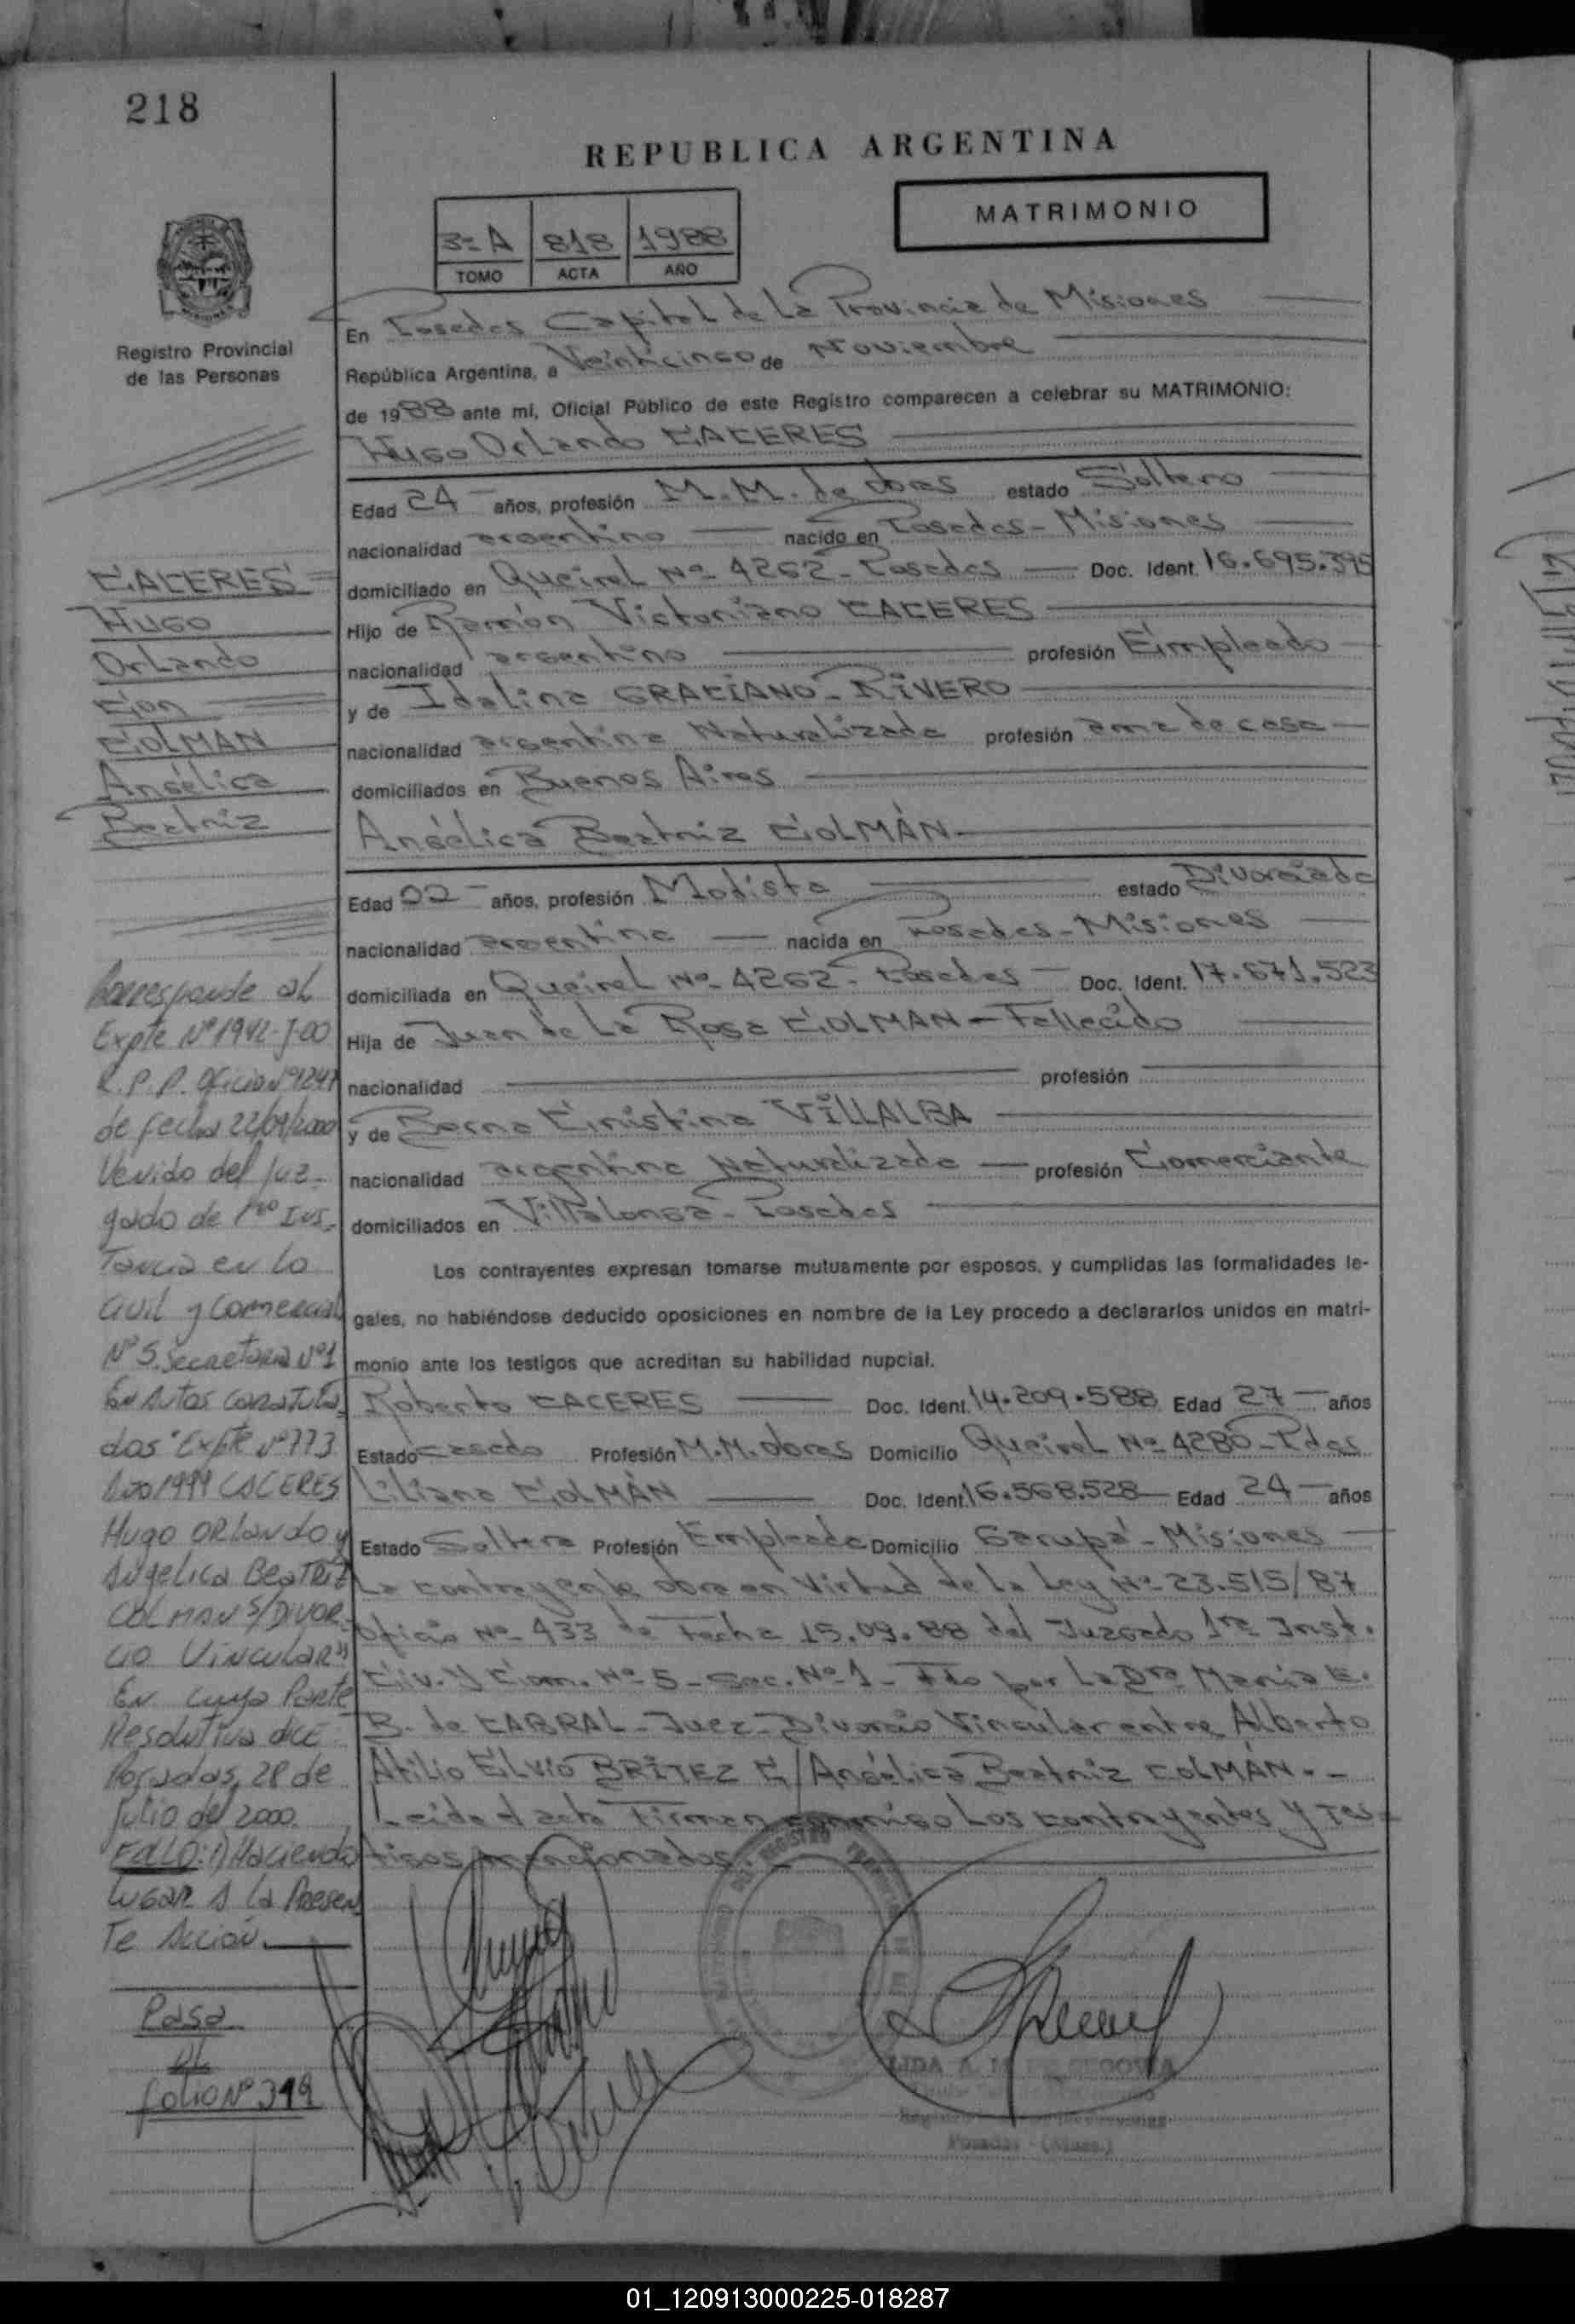 218
REPUBLICA ARGENTINA
MATRIMONIO
3=A 818 1988
TOMO ACTA AÑO
Registro Provincial
de las Personas
En Posadas Capital de La Provincia de Misiones
República Argentina, a Veinticinco de Noviembre
de 1988 ante mí, Oficial Público de este Registro comparecen a celebrar su MATRIMONIO:
Hugo Orlando CACERES
Edad 24 años, profesión M.M. de obras estado Soltero
nacionalidad argentino nacido en Posadas - Misiones
domiciliado en Queirel Nº 4262 - Posadas Doc. Ident. 16.695.395
Hijo de Ramón Victoriano CACERES
nacionalidad argentino profesión Empleado
y de Idalina GRACIANO - RIVERO
nacionalidad argentina Naturalizada profesión ama de casa
domiciliados en Buenos Aires
Angélica Beatriz COLMÁN
Edad 22 años, profesión Modista estado Divorciada
nacionalidad argentina nacida en Posadas - Misiones
domiciliada en Queirel Nº 4262 - Posadas Doc. Ident. 17.671.523
Hija de Juan de La Rosa COLMAN - Fallecido
nacionalidad profesión
y de Cristina VILLALBA
nacionalidad argentina Naturalizada profesión Comerciante
domiciliados en Villalonga - Posadas
Los contrayentes expresan tomarse mutuamente por esposos, y cumplidas las formalidades le-
gales, no habiéndose deducido oposiciones en nombre de la Ley procedo a declararlos unidos en matri-
monio ante los testigos que acreditan su habilidad nupcial.
Roberto CACERES Doc. Ident. 14.209.588 Edad 27 años
Estado casado Profesión M.M. obras Domicilio Queirel Nº 4280 - Pdas
Liliana COLMÁN Doc. Ident. 16.568.528 Edad 24 años
Estado Soltera Profesión Empleada Domicilio Garupá - Misiones
La contrayente obra en Virtud de la Ley Nº 23.515/87
Oficio Nº 433 de Fecha 15.09.88 del Juzgado 1ra Inst.
Civ. y Com. Nº 5 - Sec. Nº 1 - Fdo por La Dra María E.
B. de CABRAL - Juez - Divorcio Vincular entre Alberto
Atilio Elvio BRITEZ C/ Angélica Beatriz COLMÁN. -
Leída el acta Firman conmigo Los contrayentes y Tes-
tigos mencionados. -
CACERES
Hugo
Orlando
Con
COLMAN
Angélica
Beatriz
Corresponde al
Expte Nº 1942-J-00
R.P.P. Oficio Nº 1241
de fecha 22/09/2000
Venido del Juz-
gado de 1ro Ins-
Tancia en lo
Civil y Comercial
Nº 5. Secretaria Nº 1
En Autos Caratula-
dos "Expte Nº 773
Año 1999 CACERES
Hugo ORLANDO y
Angelica BEATRIZ
COLMAN S/DIVOR-
CIO VINCULAR"
En cuya Parte
Resolutiva dice
Posadas, 28 de
Julio del 2000.
FALLO: 1) Haciendo
lugar a la Presen
Te Acción.
Pasa
al
folio Nº 319
LIDA A. M. DE SEGOVIA
Posadas - (Mnes.)
01_120913000225-018287